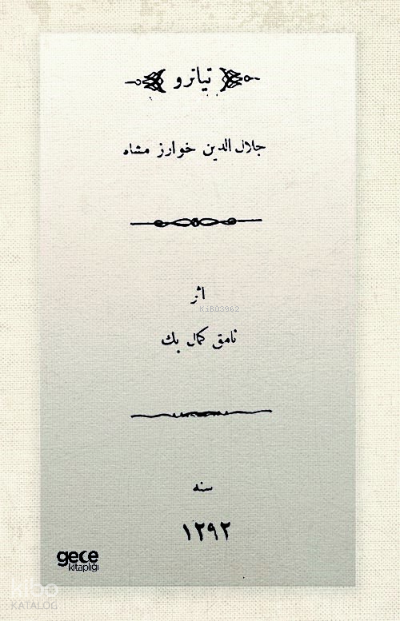 تياترو
جلال الدين خوارز مشاه
اثر
KiB03962
نامق كمال بك
سنه
١٢٩٢
gece
kitaplığı
kibo
KATALOG